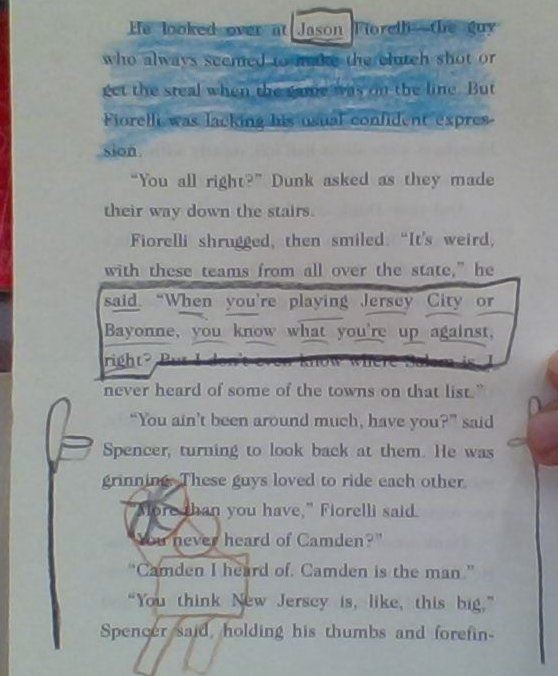 He looked over at Jason Fiorelli—the guy
who always seemed to make the clutch shot or
get the steal when the game was on the line. But
Fiorelli was lacking his usual confident expres-
sion.
"You all right?" Dunk asked as they made
their way down the stairs.
Fiorelli shrugged, then smiled. "It's weird,
with these teams from all over the state," he
said. "When you're playing Jersey City or
Bayonne, you know what you're up against,
right? But I don't even know where Salem is. I
never heard of some of the towns on that list."
"You ain't been around much, have you?" said
Spencer, turning to look back at them. He was
grinning. These guys loved to ride each other.
"More than you have," Fiorelli said.
"You never heard of Camden?"
"Camden I heard of. Camden is the man."
"You think New Jersey is, like, this big,"
Spencer said, holding his thumbs and forefin-